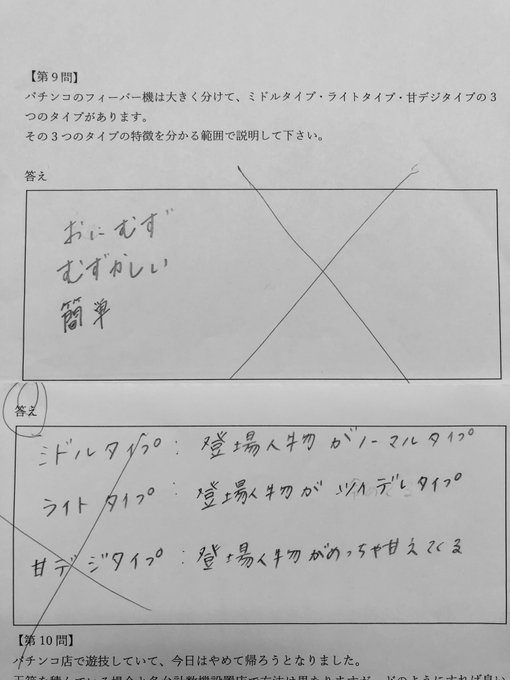 【第９問】
パチンコのフィーバー機は大きく分けて、ミドルタイプ・ライトタイプ・甘デジタイプの３
つのタイプがあります。
その３つのタイプの特徴を分かる範囲で説明して下さい。
答え
おにむず
むずかしい
簡単
答え
ミドルタイプ：登場人物がノーマルタイプ
ライトタイプ：登場人物がツンデレタイプ
甘デジタイプ：登場人物がめっちゃ甘えてくる
【第10問】
パチンコ店で遊技していて、今日はやめて帰ろうとなりました。